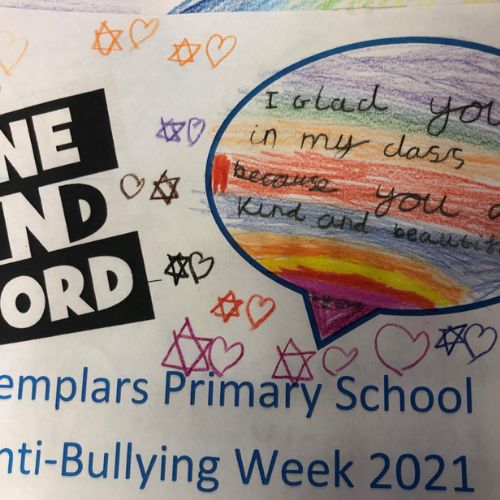 NE
ND
ORD
I Glad you
in my class
because you a
kind and beautif
emplars Primary School
nti-Bullying Week 2021